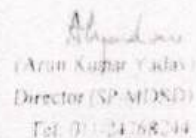 (Arun Kumar Yadav)
Director (SP-MDNS)
Tel: 011-24768244